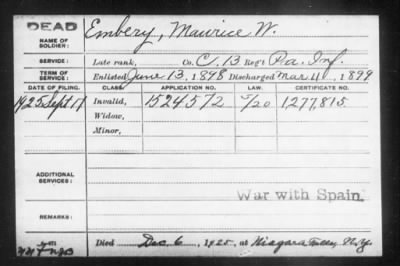 DEAD
NAME OF SOLDIER: Embery, Maurice W.
SERVICE: Late rank, Co. C, 13 Reg't Pa. Inf.
TERM OF SERVICE: Enlisted June 13, 1898 Discharged Mar 11, 1899
DATE OF FILING. CLASS. APPLICATION NO. LAW. CERTIFICATE NO.
1925 Sept 17 Invalid, 1524572 5/20 1277,815
Widow,
Minor,
ADDITIONAL SERVICES:
War with Spain.
REMARKS:
Died Dec 6, 1925, at Niagara Falls N.Y.